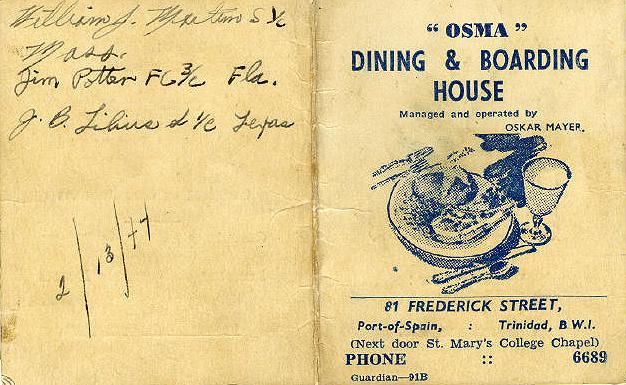 William J. Martin S 1/c
Mass.
Jim Potter FC 3/c Fla.
J. B. S 1/c Texas
2/13/44
“ OSMA ”
DINING & BOARDING
HOUSE
Managed and operated by
OSKAR MAYER.
81 FREDERICK STREET,
Port-of-Spain, : Trinidad, B.W.I.
(Next door St. Mary's College Chapel)
PHONE :: 6689
Guardian—91B